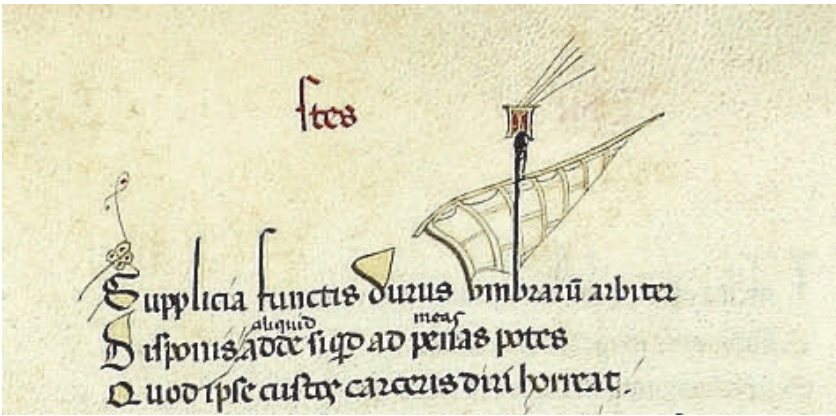 stes
Supplicia functis durus vmbrarū arbiter
aliquid meas
Disponis adde siqd ad penas potes
Quod ipse custos carceris diri horreat.